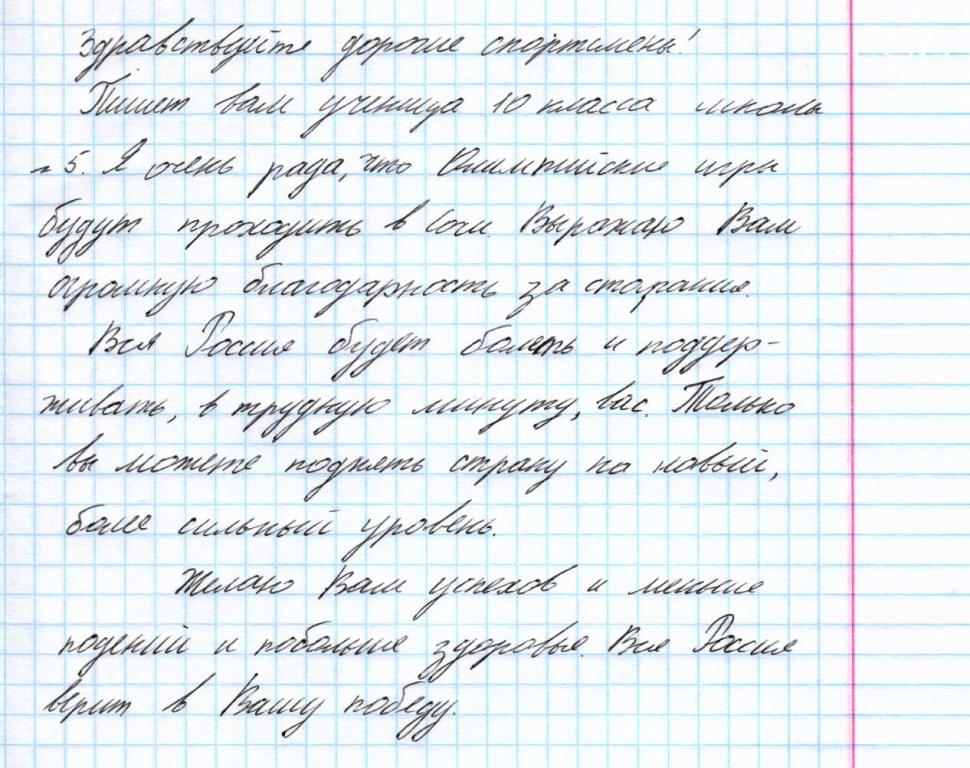 Здравствуйте дорогие спортсмены!
Пишет вам ученица 10 класса школы
№5. Я очень рада, что Олимпийские игры
будут проходить в Сочи. Выражаю Вам
огромную благодарность за старания.
Вся Россия будет болеть и поддер-
живать, в трудную минуту, вас. Только
вы можете поднять страну на новый,
более сильный уровень.
Желаю Вам успехов и меньше
подений и побольше здоровья. Вся Россия
верит в Вашу победу.